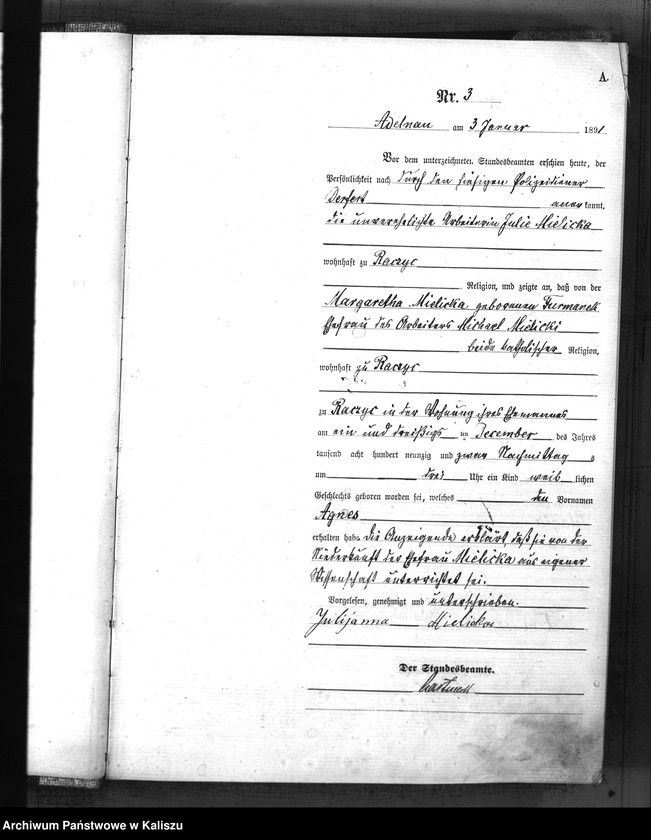 A.
Nr. 3
Adelnau am 3 Januar 1891
Vor dem unterzeichneten Standesbeamten erschien heute, der
Persönlichkeit nach durch den hiesigen Polizeidiener
anerkannt,
die unverehelichte Arbeiterin Julie Mielicka
wohnhaft zu Raczyc
Religion, und zeigte an, daß von der
Margaretha Mielicka geborenen Furmanek
Ehefrau des Arbeiters Michael Mielicki
beide katholischer Religion,
wohnhaft zu Raczyc
zu Raczyc in der Wohnung ihres Ehemannes
am ein und dreißigs ten December des Jahres
tausend acht hundert neunzig und zwar Nachmittag s
um drei Uhr ein Kind weib lichen
Geschlechts geboren worden sei, welches den Vornamen
Agnes
erhalten habe. Die Anzeigende erklärt, daß sie von der
Niederkunft der Ehefrau Mielicka aus eigener
Wissenschaft unterrichtet sei.
Vorgelesen, genehmigt und unterschrieben.
Julijanna Mielicka
Der Standesbeamte.
Archiwum Państwowe w Kaliszu